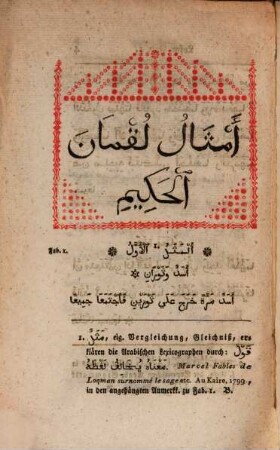 أَمْثَالُ لُقْمَانَ
ٱلْحَكِيمِ
Fab. 1.
أَلْمَثَلُ ٱلْأَوَّلُ
أَسَدٌ وَثَوْرَانِ
أَسَدٌ مَرَّةً خَرَجَ عَلَى ثَوْرَيْنِ فَٱجْتَمَعَا جَمِيعًا
1. مَثَلٌ, eig. Vergleichung, Gleichniß, er-
klären die Arabischen Lexicographen durch: قَوْلٌ
Marcel Fables de
Loqman surnommé le sage etc. Au Kaire, 1799.
in den angehängten Anmerkk. zu Fab. 1. B.